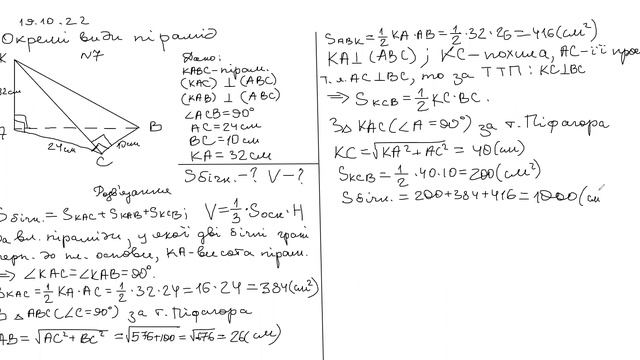 19.10.22
Окремі види пірамід
№7
K
B
C
24см
10см
Дано:
KABC-пірам.
(KAC) ⊥ (ABC)
(KAB) ⊥ (ABC)
∠ACB=90°
AC=24см
BC=10см
KA=32см
Sбічн.-? V-?
Розв'язання
Sбічн.=SKAC+SKAB+SKCB; V=1/3·Sосн·H
За вл. піраміди, у якої дві бічні грані
перп. до пл. основи, KA-висота пірам.
⇒ ∠KAC=∠KAB=90°.
SKAC=1/2 KA·AC=1/2·32·24=16·24=384(см²)
З △ABC(∠C=90°) за т. Піфагора
AB=√AC²+BC²=√576+100=√676=26(см)
SABK=1/2 KA·AB=1/2·32·26=416(см²)
KA⊥(ABC); KC-похила, AC-її прое
т. я. AC⊥BC, то за ТТП: KC⊥BC
⇒ SKCB=1/2 KC·BC.
З △KAC(∠A=90°) за т. Піфагора
KC=√KA²+AC²=40(см)
SKCB=1/2·40·10=200(см²)
Sбічн.=200+384+416=1000(см